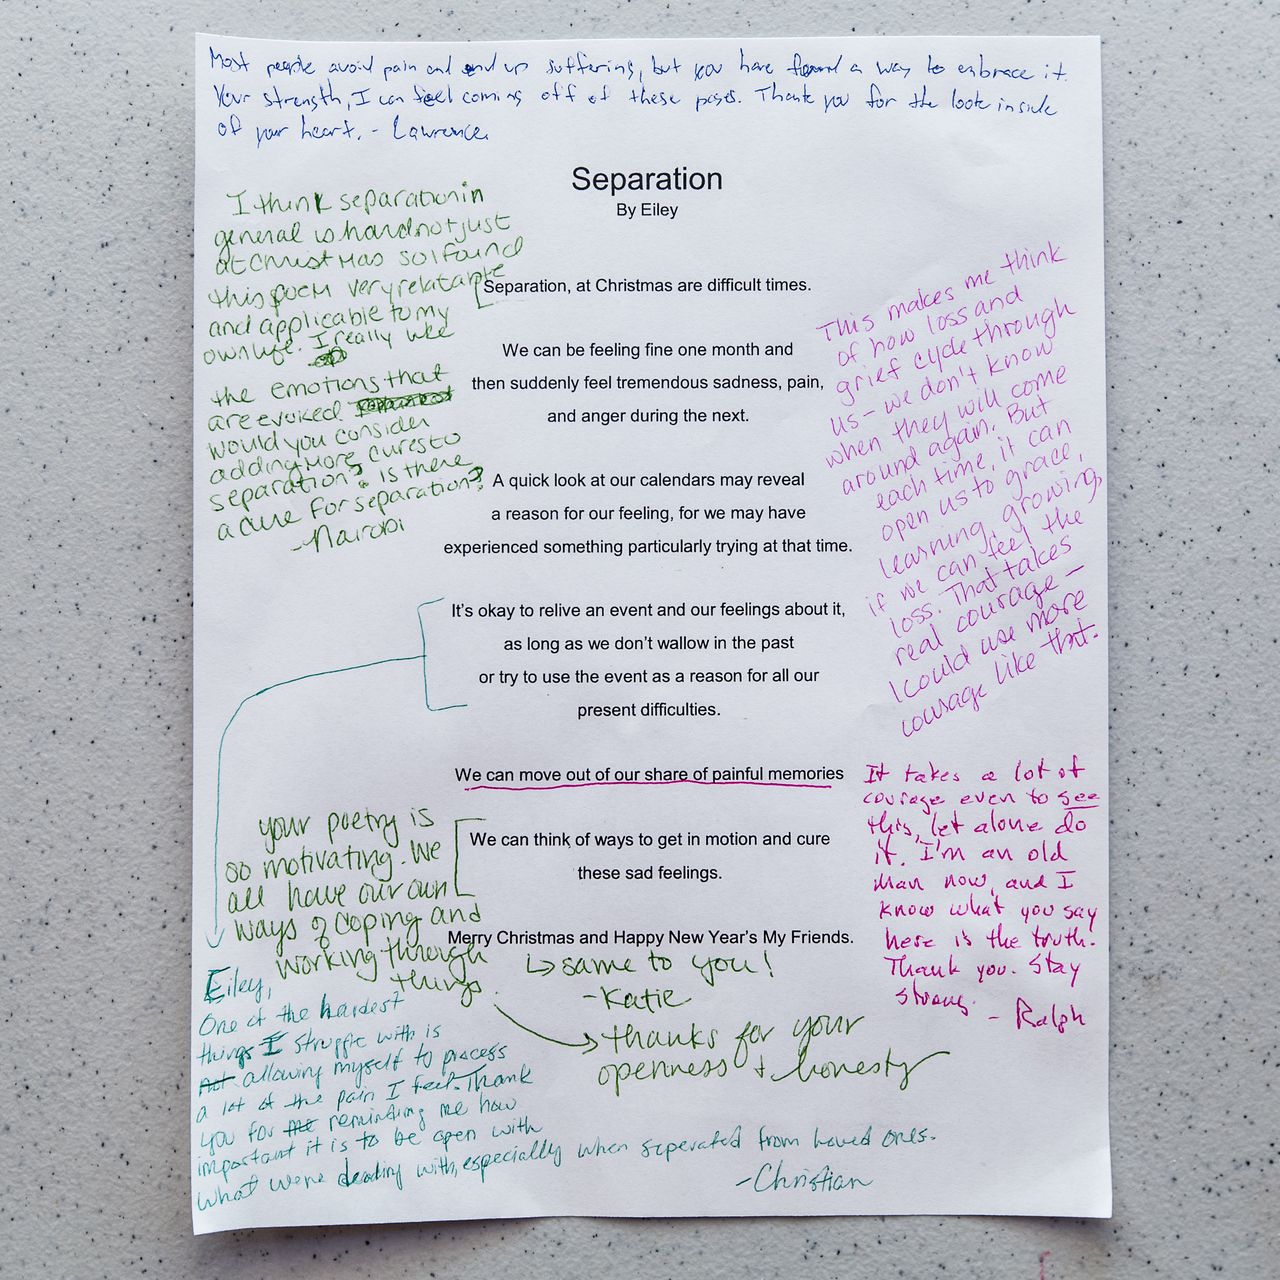 Most people avoid pain and end up suffering, but you have found a way to embrace it.
Your strength, I can feel coming off of these pages. Thank you for the look inside
of your heart. - Lawrence
Separation
By Eiley
I think separation in
general is hard not just
at Christmas so I found
this poem very relatable
and applicable to my
own life. I really like
the emotions that
are evoked
would you consider
adding more cures to
separation? is there
a cure for separation?
- Nairobi
Separation, at Christmas are difficult times.
We can be feeling fine one month and
then suddenly feel tremendous sadness, pain,
and anger during the next.
A quick look at our calendars may reveal
a reason for our feeling, for we may have
experienced something particularly trying at that time.
It's okay to relive an event and our feelings about it,
as long as we don't wallow in the past
or try to use the event as a reason for all our
present difficulties.
We can move out of our share of painful memories
We can think of ways to get in motion and cure
these sad feelings.
Merry Christmas and Happy New Year's My Friends.
This makes me think
of how loss and
grief cycle through
us - we don't know
when they will come
around again. But
each time, it can
open us to grace,
learning, growing,
if we can feel the
loss. That takes
real courage -
I could use more
courage like that.
It takes a lot of
courage even to see
this, let alone do
it. I'm an old
man now, and I
know what you say
here is the truth.
Thank you. Stay
strong.
- Ralph
your poetry is
so motivating. We
all have our own
ways of coping and
working through
things.
same to you!
- Katie
thanks for your
openness + honesty
Eiley,
One of the hardest
things I struggle with is
not allowing myself to process
a lot of the pain I feel. Thank
you for the reminding me how
important it is to be open with
what we're dealing with, especially when seperated from loved ones.
- Christian